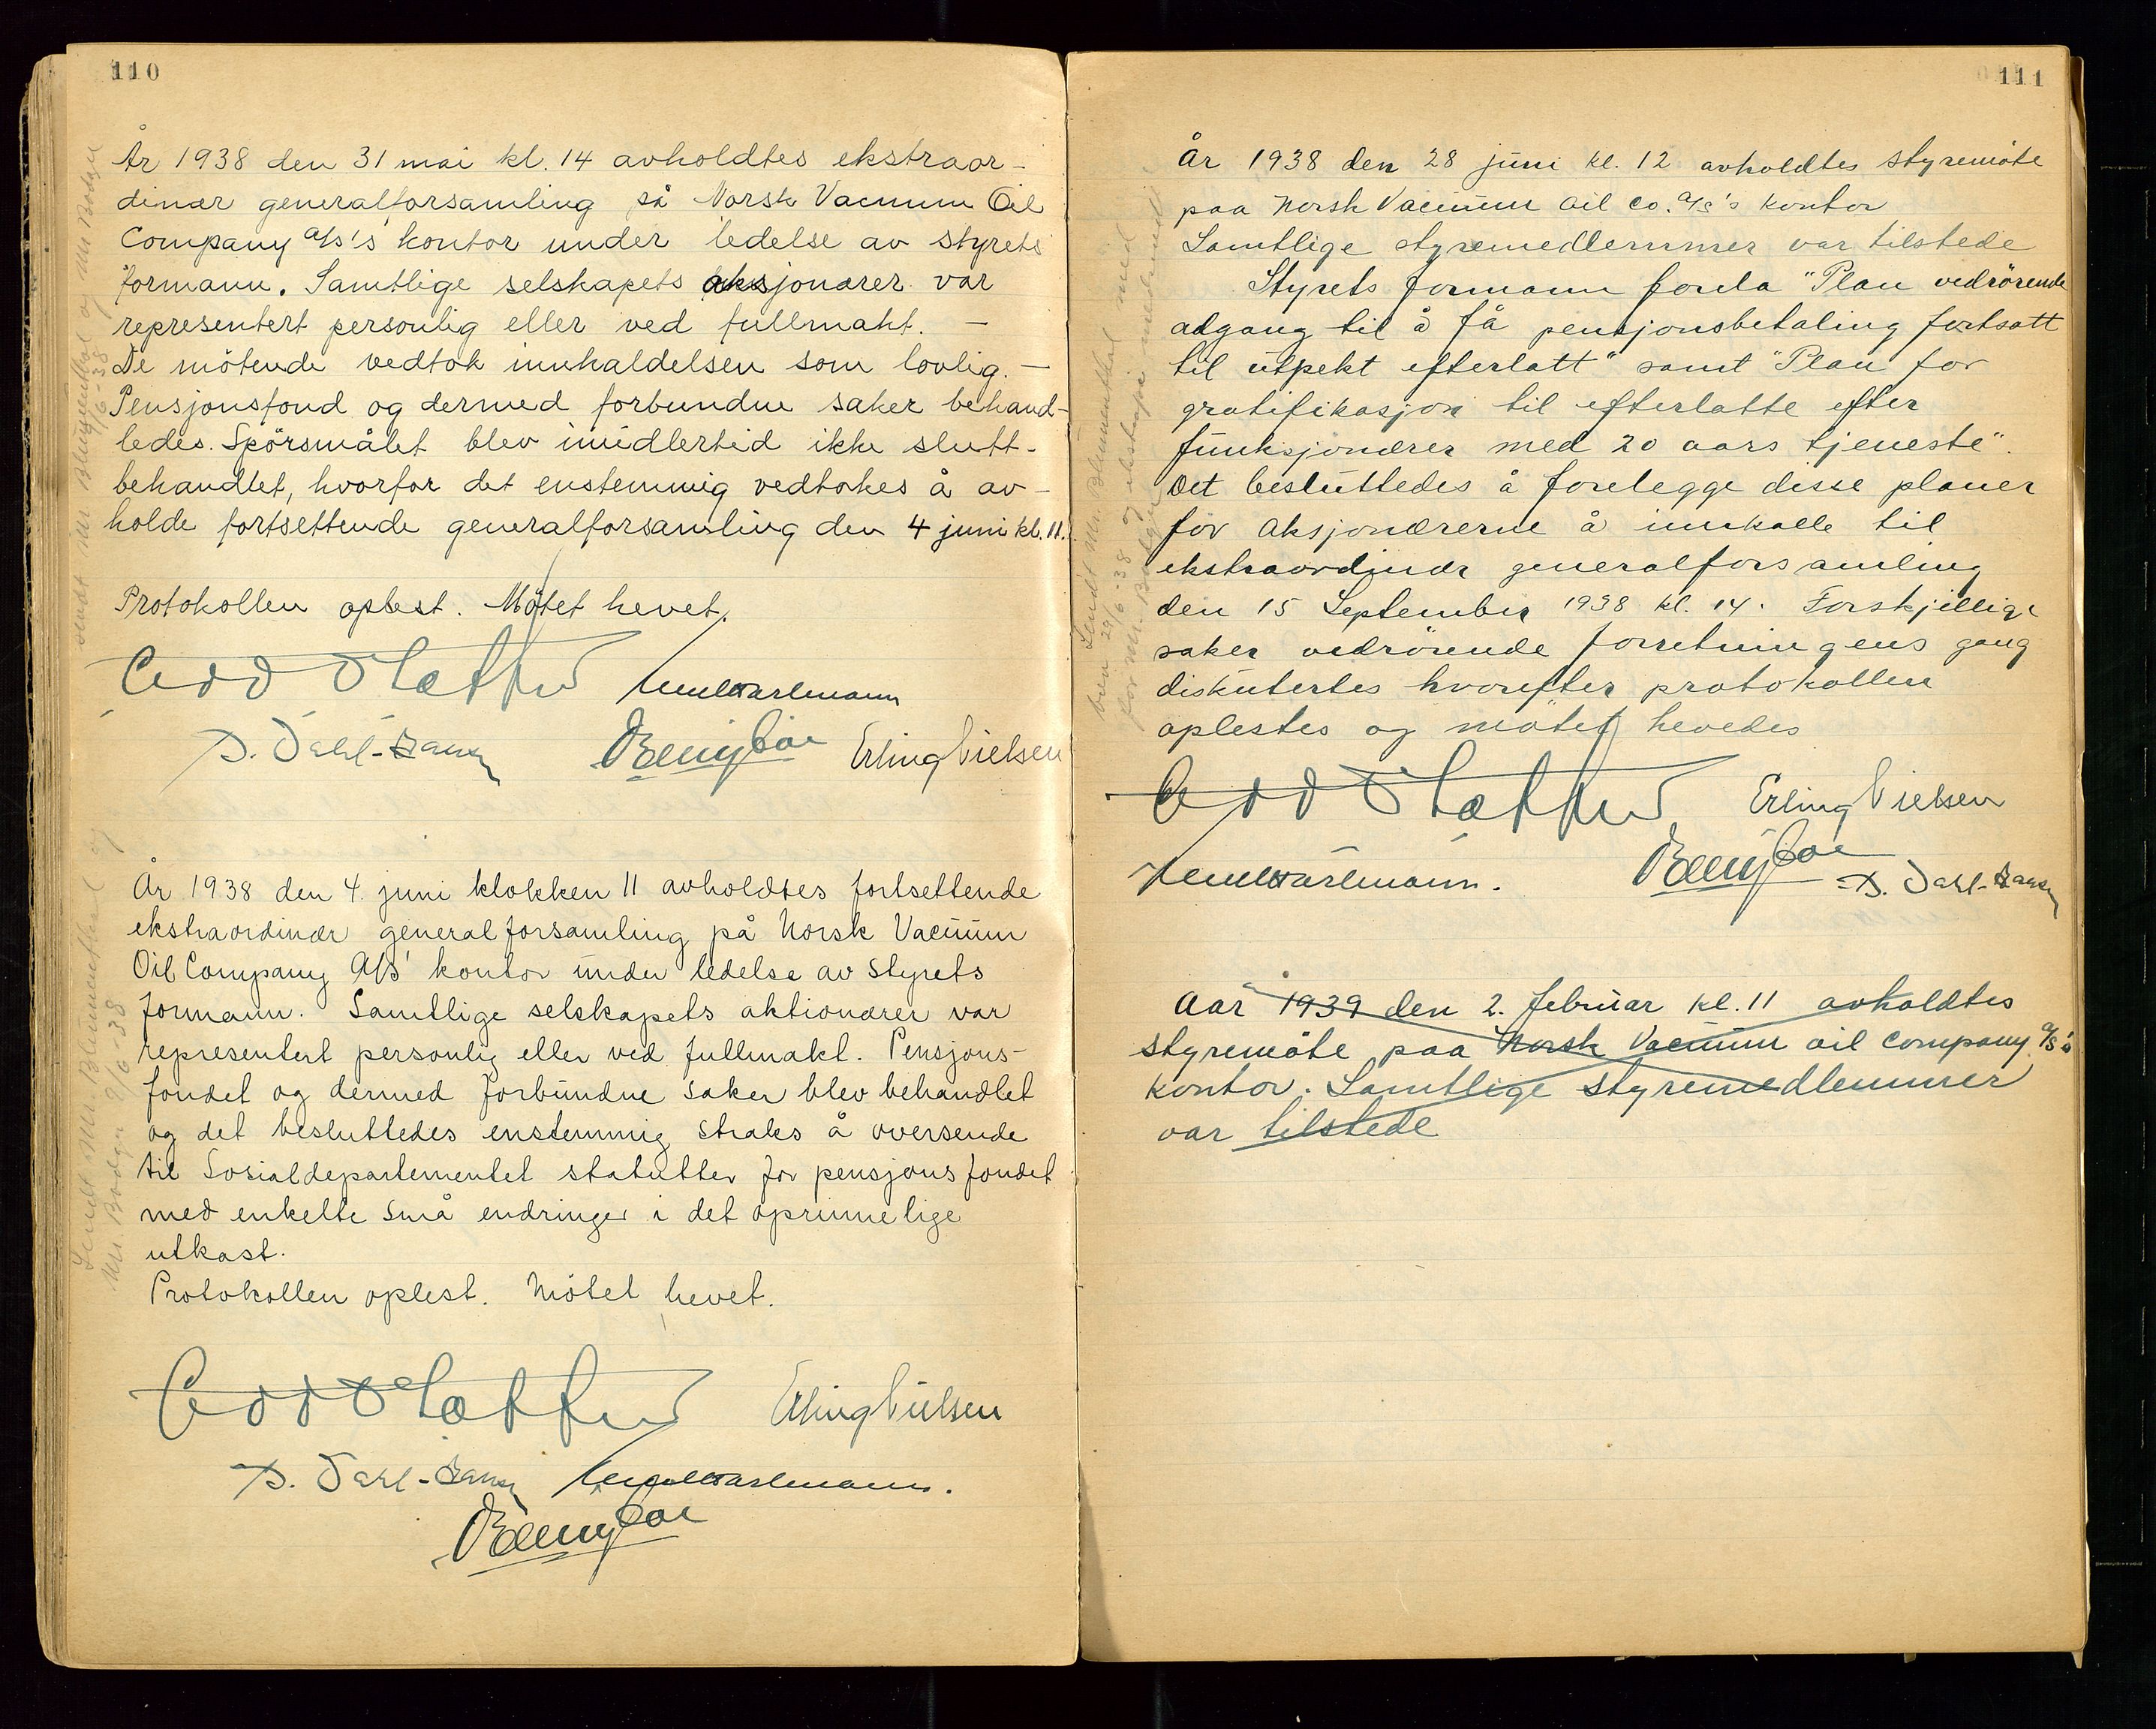 110
År 1938 den 31 mai kl. 14 avholdtes ekstraor-
dinær generalforsamling på Norsk Vacuum Oil
Company A/S's kontor under ledelse av styrets
formann. Samtlige selskapets aksjonærer var
representert personlig eller ved fullmakt. —
De mötende vedtok innkaldelsen som lovlig. —
Pensjonsfond og dermed forbundne saker behand-
ledes. Spörsmålet blev imidlertid ikke slutt-
behandlet, hvorfor det enstemmig vedtokes å av-
holde fortsettende generalforsamling den 4 juni kl. 11.
Protokollen oplest. Mötet hevet.
D. Dahl-Hansen Erling Nielsen
Sendt Mr. Blumenthal og Mr Bodger
9/6-38
År 1938 den 4. juni klokken 11 avholdtes fortsettende
ekstraordinær generalforsamling på Norsk Vacuum
Oil Company A/S' kontor under ledelse av styrets
formann. Samtlige selskapets aktionærer var
representert personlig eller ved fullmakt. Pensjons-
fondet og dermed forbundne saker blev behandlet
og det besluttedes enstemmig straks å oversende
til Sosialdepartementet statutter for pensjonsfondet
med enkelte små endringer i det oprinnelige
utkast.
Protokollen oplest. Mötet hevet.
Erling Nielsen
D. Dahl-Hansen
Sendt Mr. Blumenthal og
Mr. Bodger 9/6-38
111
År 1938 den 28 juni kl. 12 avholdtes styremöte
paa Norsk Vacuum Oil Co. A/S's kontor
Samtlige styremedlemmer var tilstede
Styrets formann forela "Plan vedrörende
adgang til å få pensjonsbetaling fortsatt
til utpekt efterlatt" samt "Plan for
gratifikasjon til efterlatte efter
funksjonærer med 20 aars tjeneste".
Det besluttedes å forelegge disse planer
for aksjonærerne å innkalle til
ekstraordinær generalforsamling
den 15 September 1938 kl. 14. Forskjellige
saker vedrörende forretningens gang
diskutertes hvorefter protokollen
oplestes og mötet hevedes
Erling Nielsen
D. Dahl-Hansen
Sendt Mr. Blumenthal med
brev 29/6-38 og
for Mr. Bodger
Aar 1939 den 2. februar kl. 11 avholdtes
styremöte paa Norsk Vacuum Oil Company A/S's
kontor. Samtlige styremedlemmer
var tilstede